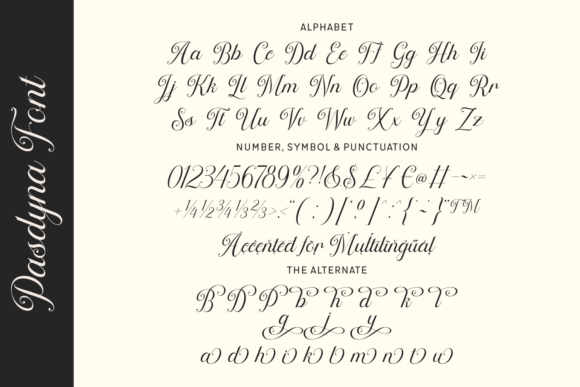 Pasdyna Font
ALPHABET
Aa Bb Cc Dd Ee Ff Gg Hh Ii
Jj Kk Ll Mm Nn Oo Pp Qq Rr
Ss Tt Uu Vv Ww Xx Yy Zz
NUMBER, SYMBOL & PUNCTUATION
0123456789%?!&$£¥€@#
Accented for Multilingual
THE ALTERNATE
B D P b h d k l
g j y
a d h i k l m n t u